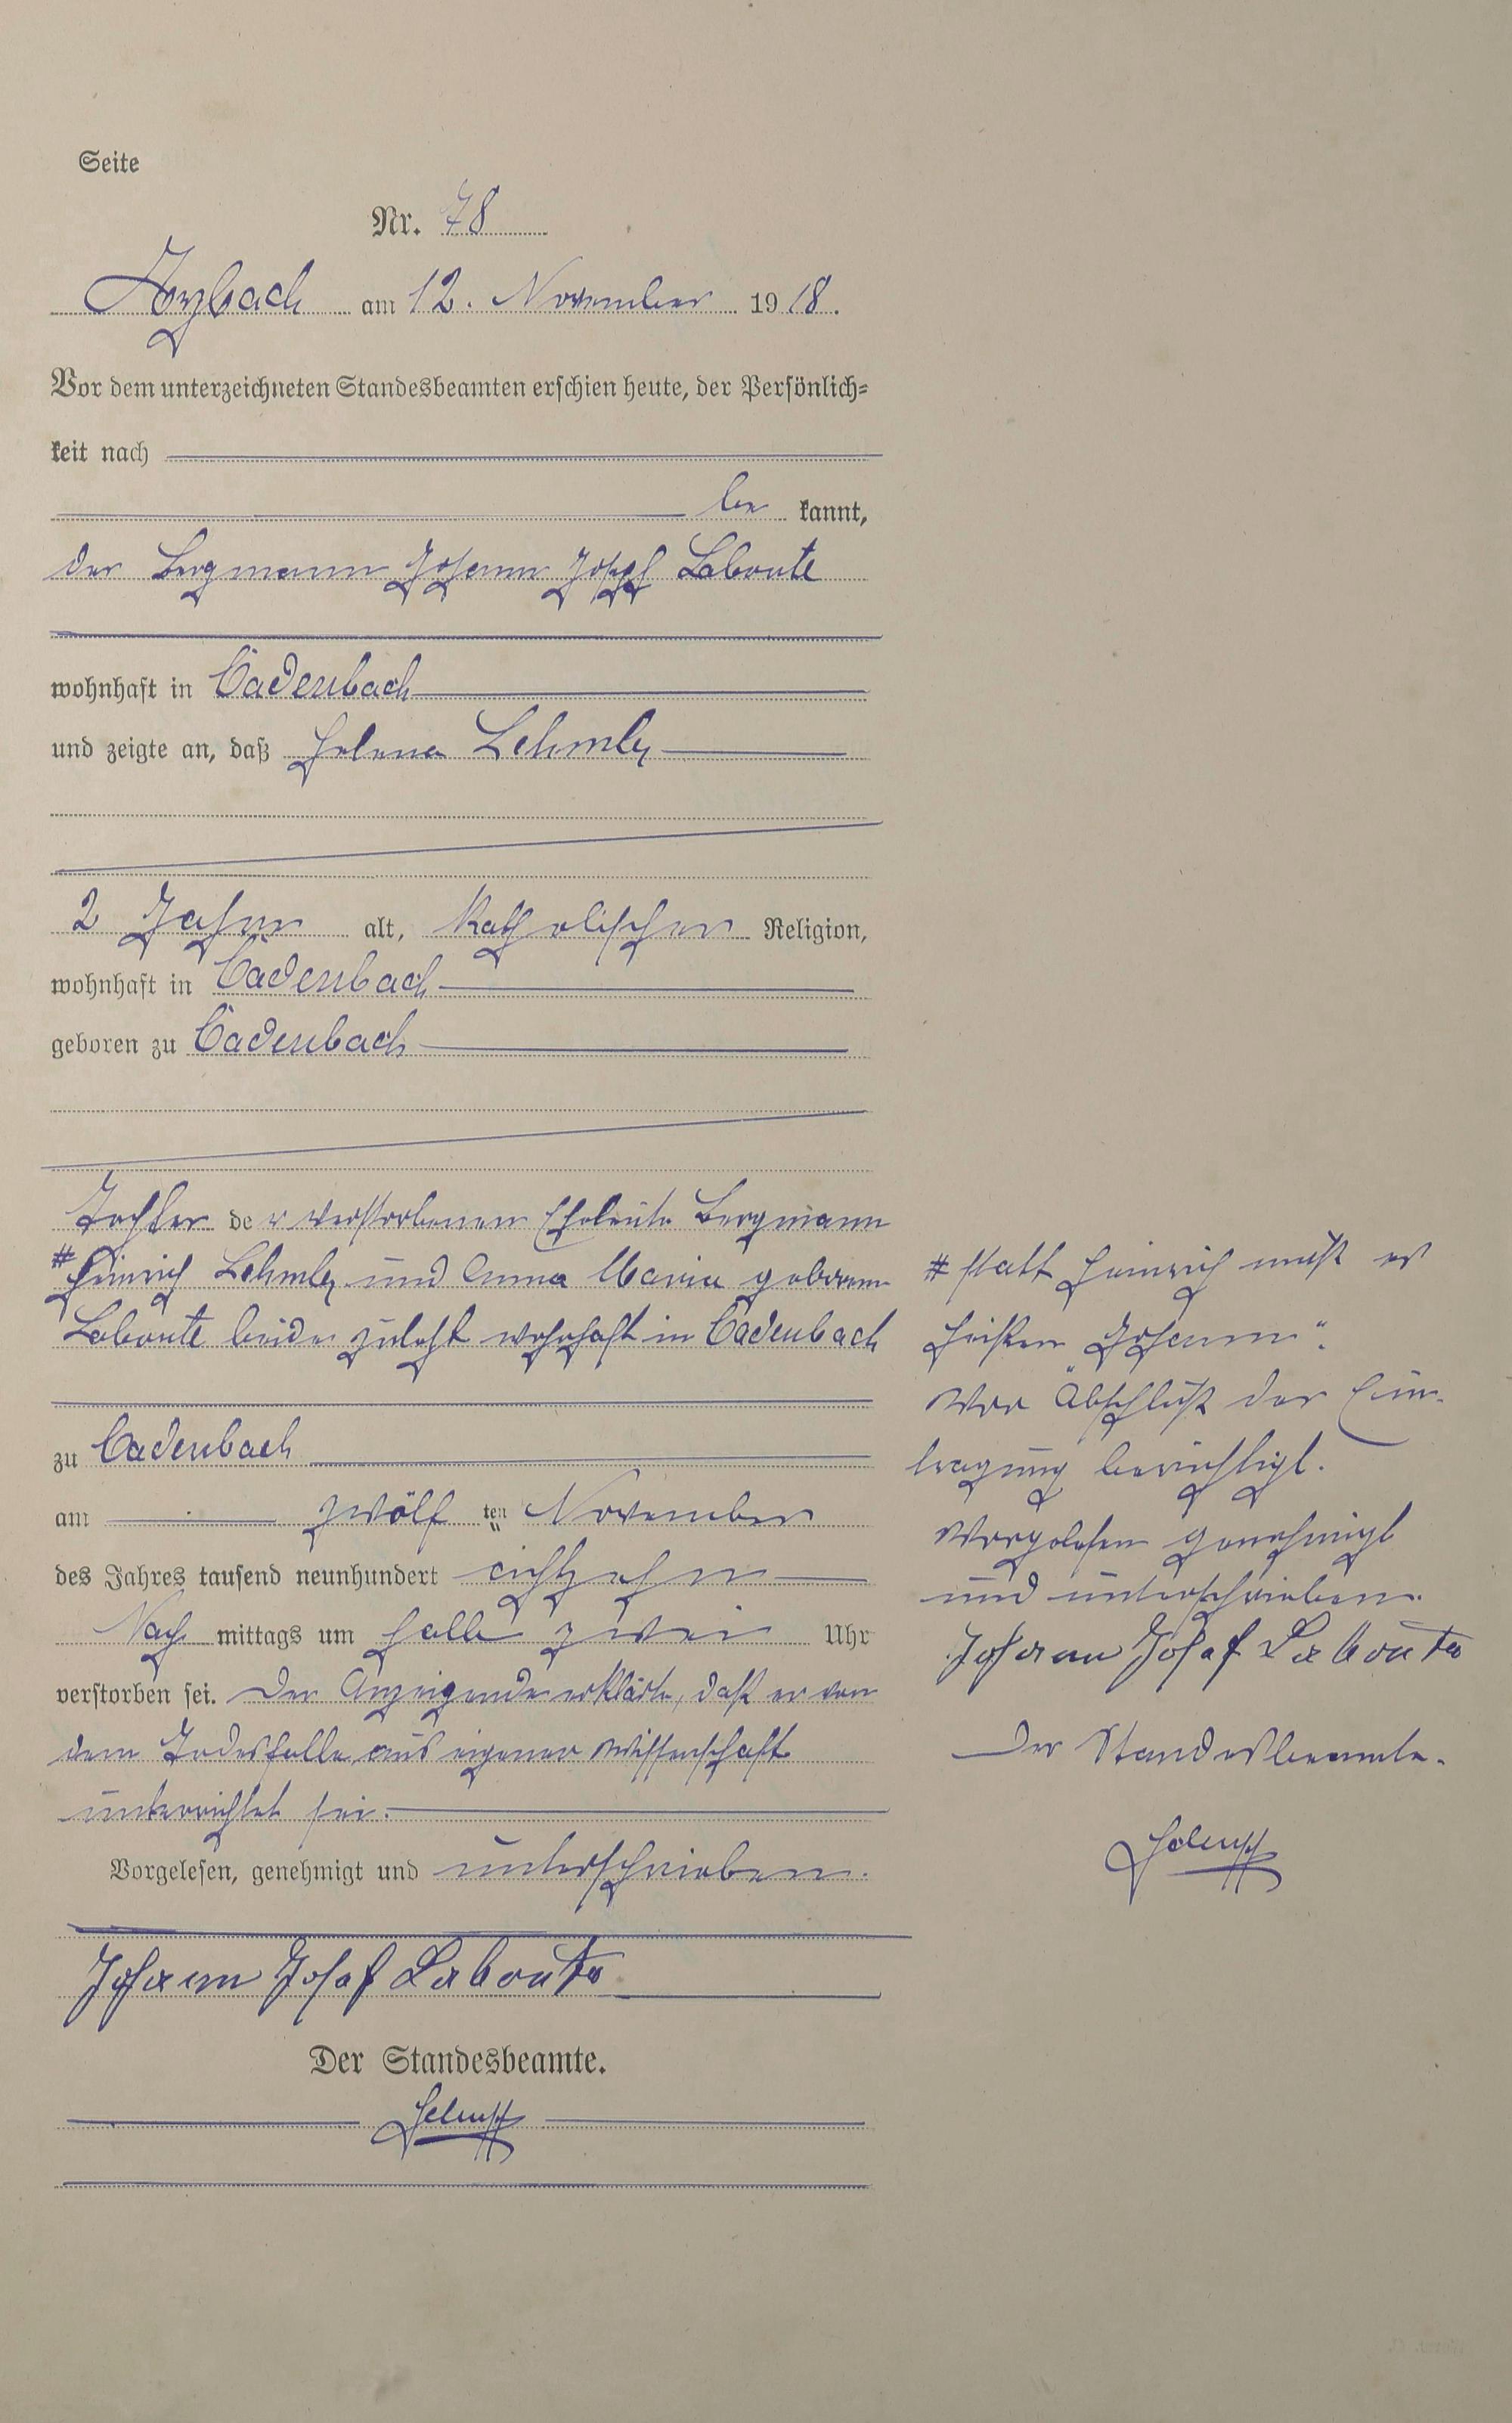 Seite
Nr. 78
Arzbach am 12. November 1918.
Vor dem unterzeichneten Standesbeamten erschien heute, der Persönlich-
keit nach
be kannt,
der Bergmann Johann Josef Labonte
wohnhaft in Cadenbach
und zeigte an, daß Helena Lehmler
2 Jahre alt, katholischer Religion,
wohnhaft in Cadenbach
geboren zu Cadenbach
Tochter der verstorbenen Eheleute Bergmann
# Heinrich Lehmler und Anna Maria geborene
Labonte beide zuletzt wohnhaft in Cadenbach
zu Cadenbach
am zwölf ten November
des Jahres tausend neunhundert achtzehn
Nach mittags um halb zwei Uhr
verstorben sei. Der Anzeigende erklärte, daß er von
dem Todesfalle aus eigener Wissenschaft
unterrichtet sei.
Vorgelesen, genehmigt und unterschrieben.
Johann Josef Labonte
Der Standesbeamte.
# statt Heinrich muß es
heißen „Johann“.
Vor Abschluß der Ein-
tragung berichtigt.
Vorgelesen genehmigt
und unterschrieben.
Johann Josef Labonte
Der Standesbeamte.